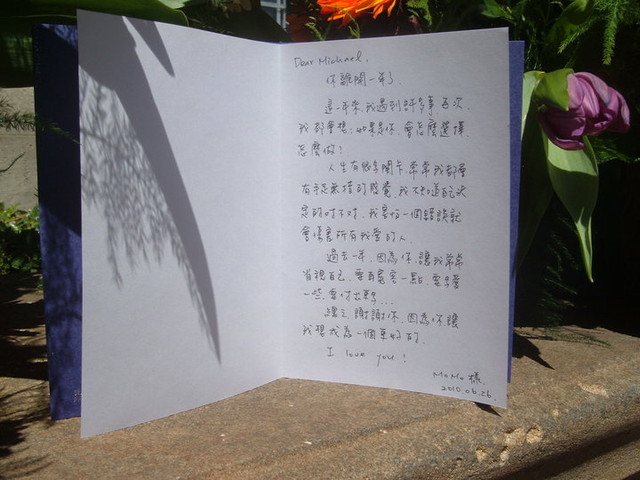 Dear Michael,
你離開一年了.
這一年來,我遇到許多事,每次,
我都會想:如果是你,會怎麼選擇,
怎麼做?
人生有很多關卡,常常我都會
有手足無措的感覺,我不知道自己決
定的對不對,我害怕一個錯誤就
會傷害所有我愛的人.
過去一年,因為你,讓我常常
省視自己,要再寬容一點,要
一些,要付出更多...
總之,謝謝你,因為你,讓
我想成為一個更好的人.
I love you!
MoMo 樣.
2010.06.26.